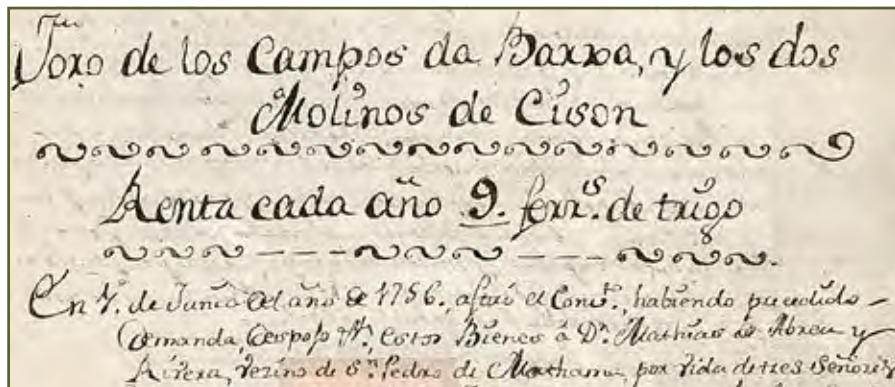 Foro de los Campos da Barra, y los dos
Molinos de Cuson
Renta cada año 9. ferr.s de trigo
En 1.º de Junio del año de 1756. aforó el Conv.to, habiendo precedido
demanda, despojo estos Bienes á D.n Mathias de Abreu y
Rivera, vezino de S.n Pedro de Mathama, por vida de tres Señores